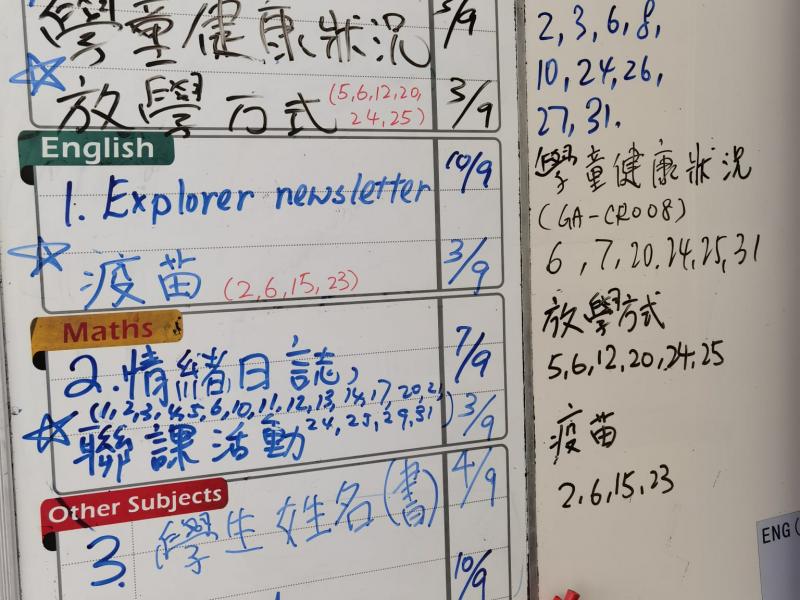 學童健康狀況 3/9
放學方式 (5,6,12,20, 3/9
24,25)
English
1. Explorer newsletter 10/9
疫苗 (2,6,15,23) 3/9
Maths
2. 情緒日誌, 7/9
(1,2,3,4,5,6,10,11,12,13,14,17,20,21,
24,25,29,31)
聯課活動 3/9
Other Subjects
3. 學生姓名(書) 4/9
10/9
2,3,6,8,
10,24,26,
27,31.
學童健康狀況
(GA-CR008)
6,7,20,24,25,31
放學方式
5,6,12,20,24,25
疫苗
2,6,15,23
ENG(